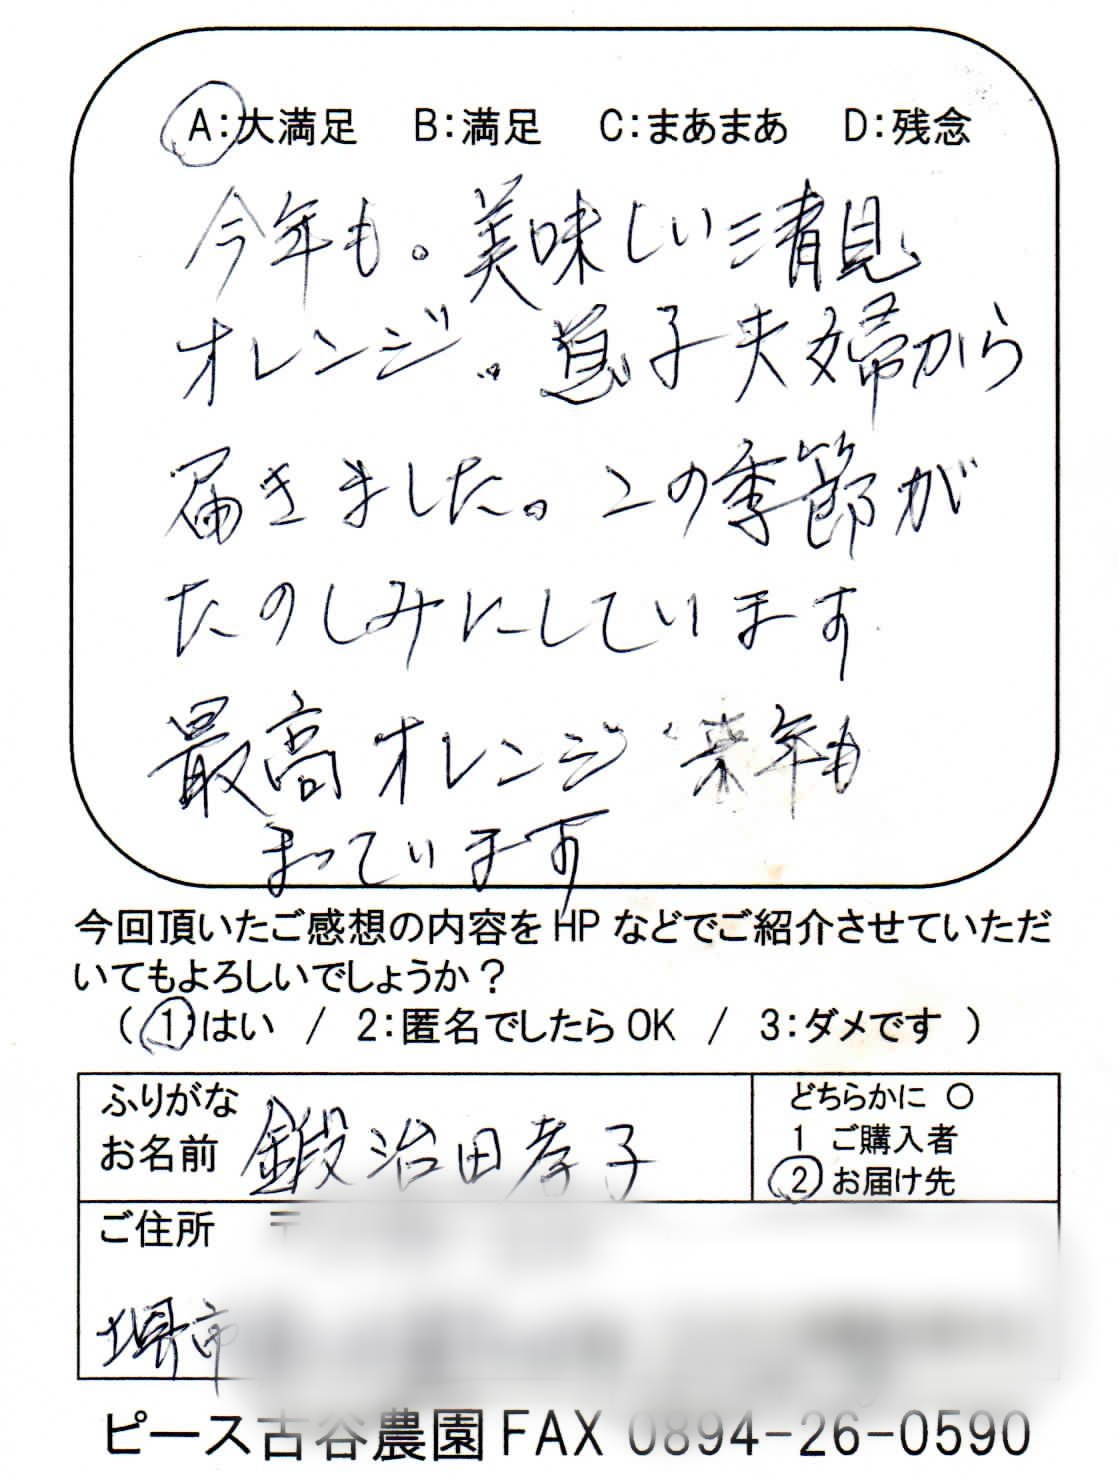 A:大満足 B:満足 C:まあまあ D:残念
今年も。美味しい清見
オレンジ。息子夫婦から
届きました。この季節が
たのしみにしています
最高オレンジ 来年も
まっています
今回頂いたご感想の内容を HP などでご紹介させていただ
いてもよろしいでしょうか？
( 1:はい / 2:匿名でしたら OK / 3:ダメです )
ふりがな
お名前 鍛治田孝子
どちらかに ○
1 ご購入者
2 お届け先
ご住所 〒
堺市
ピース古谷農園 FAX 0894-26-0590